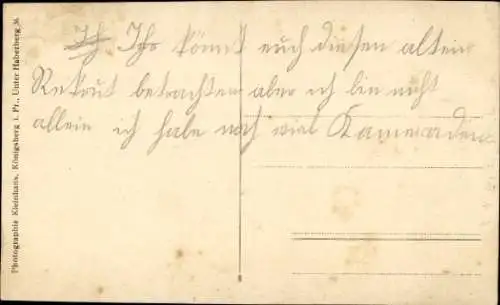 Ihr könnt euch diesen alten
Rekrut betrachten aber ich bin nicht
allein ich habe noch viel Kameraden
Photographie Kleinhans, Königsberg i. Pr., Unter Haberberg 36